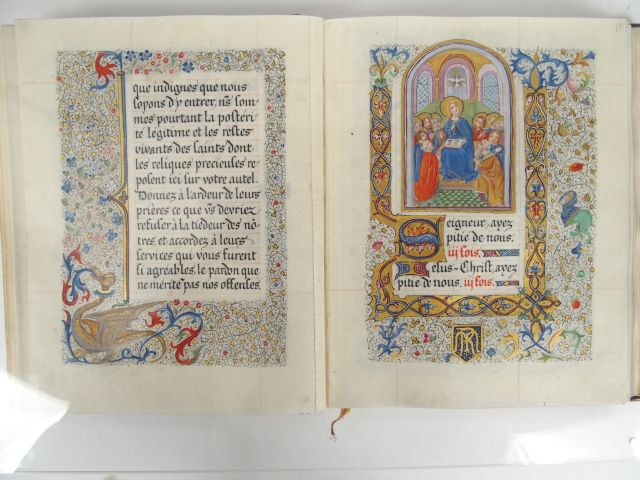 que indignes que nous
soyons d'y entrer, ns som-
mes pourtant la posteri-
té légitime et les restes
vivants des saints dont
les reliques precieuses re-
posent ici sur votre autel.
Donnez à l'ardeur de leurs
prières ce que vs devriez
refuser à la tiedeur des nô-
tres et accordez à leurs
services qui vous furent
si agréables, le pardon que
ne mérite pas nos offenses.
Seigneur, ayez
pitie de nous.
iij fois.
Jesus-Christ, ayez
pitie de nous, iij fois.